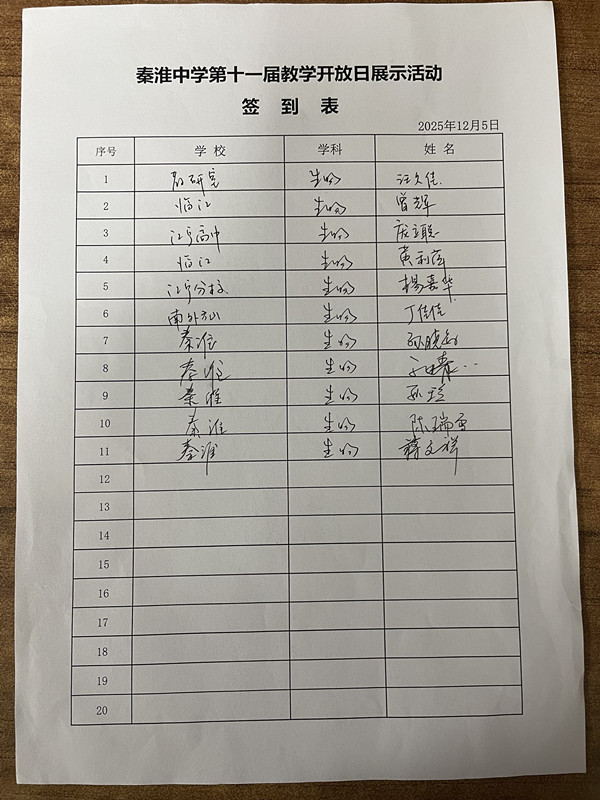 秦淮中学第十一届教学开放日展示活动
签 到 表
2025年12月5日
序号 学 校 学科 姓 名
1 教研室 生物 汪久佳
2 临江 生物 曾辉
3 江宁高中 生物 庞立聪
4 临江 生物 黄莉萍
5 江宁分校 生物 杨嘉华
6 南外方山 生物 丁佳佳
7 秦淮 生物 孙晓
8 秦淮 生物
9 秦淮 生物 孙玲
10 秦淮 生物 陈瑞雪
11 秦淮 生物 蒋文祥
12
13
14
15
16
17
18
19
20